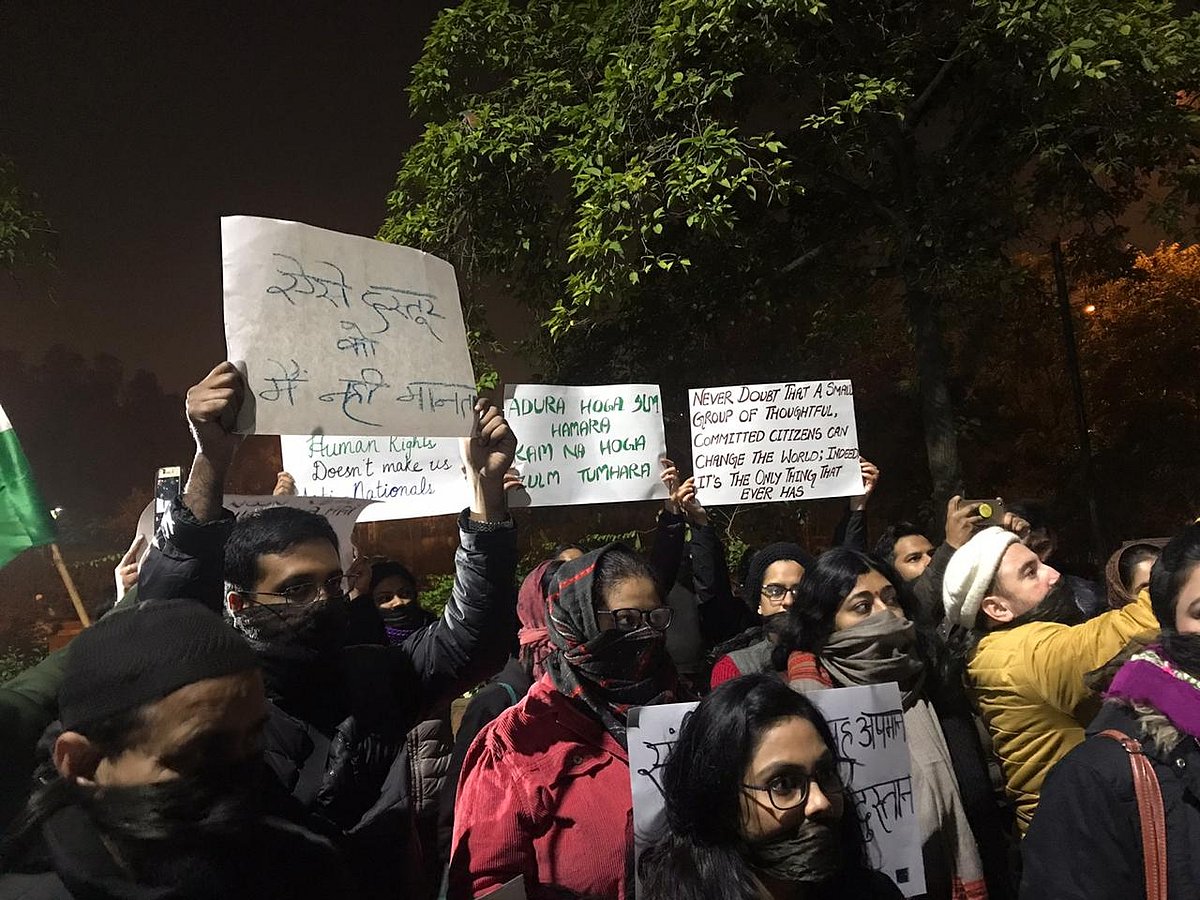 ऐसे दस्तूर
को
मैं नही मानता
Human Rights
Doesn't make us
Nationals
ADURA HOGA
HAMARA
KAM NA HOGA
ZULM TUMHARA
NEVER DOUBT THAT A SMALL
GROUP OF THOUGHTFUL,
COMMITTED CITIZENS CAN
CHANGE THE WORLD; INDEED
IT'S THE ONLY THING THAT
EVER HAS
अपमान